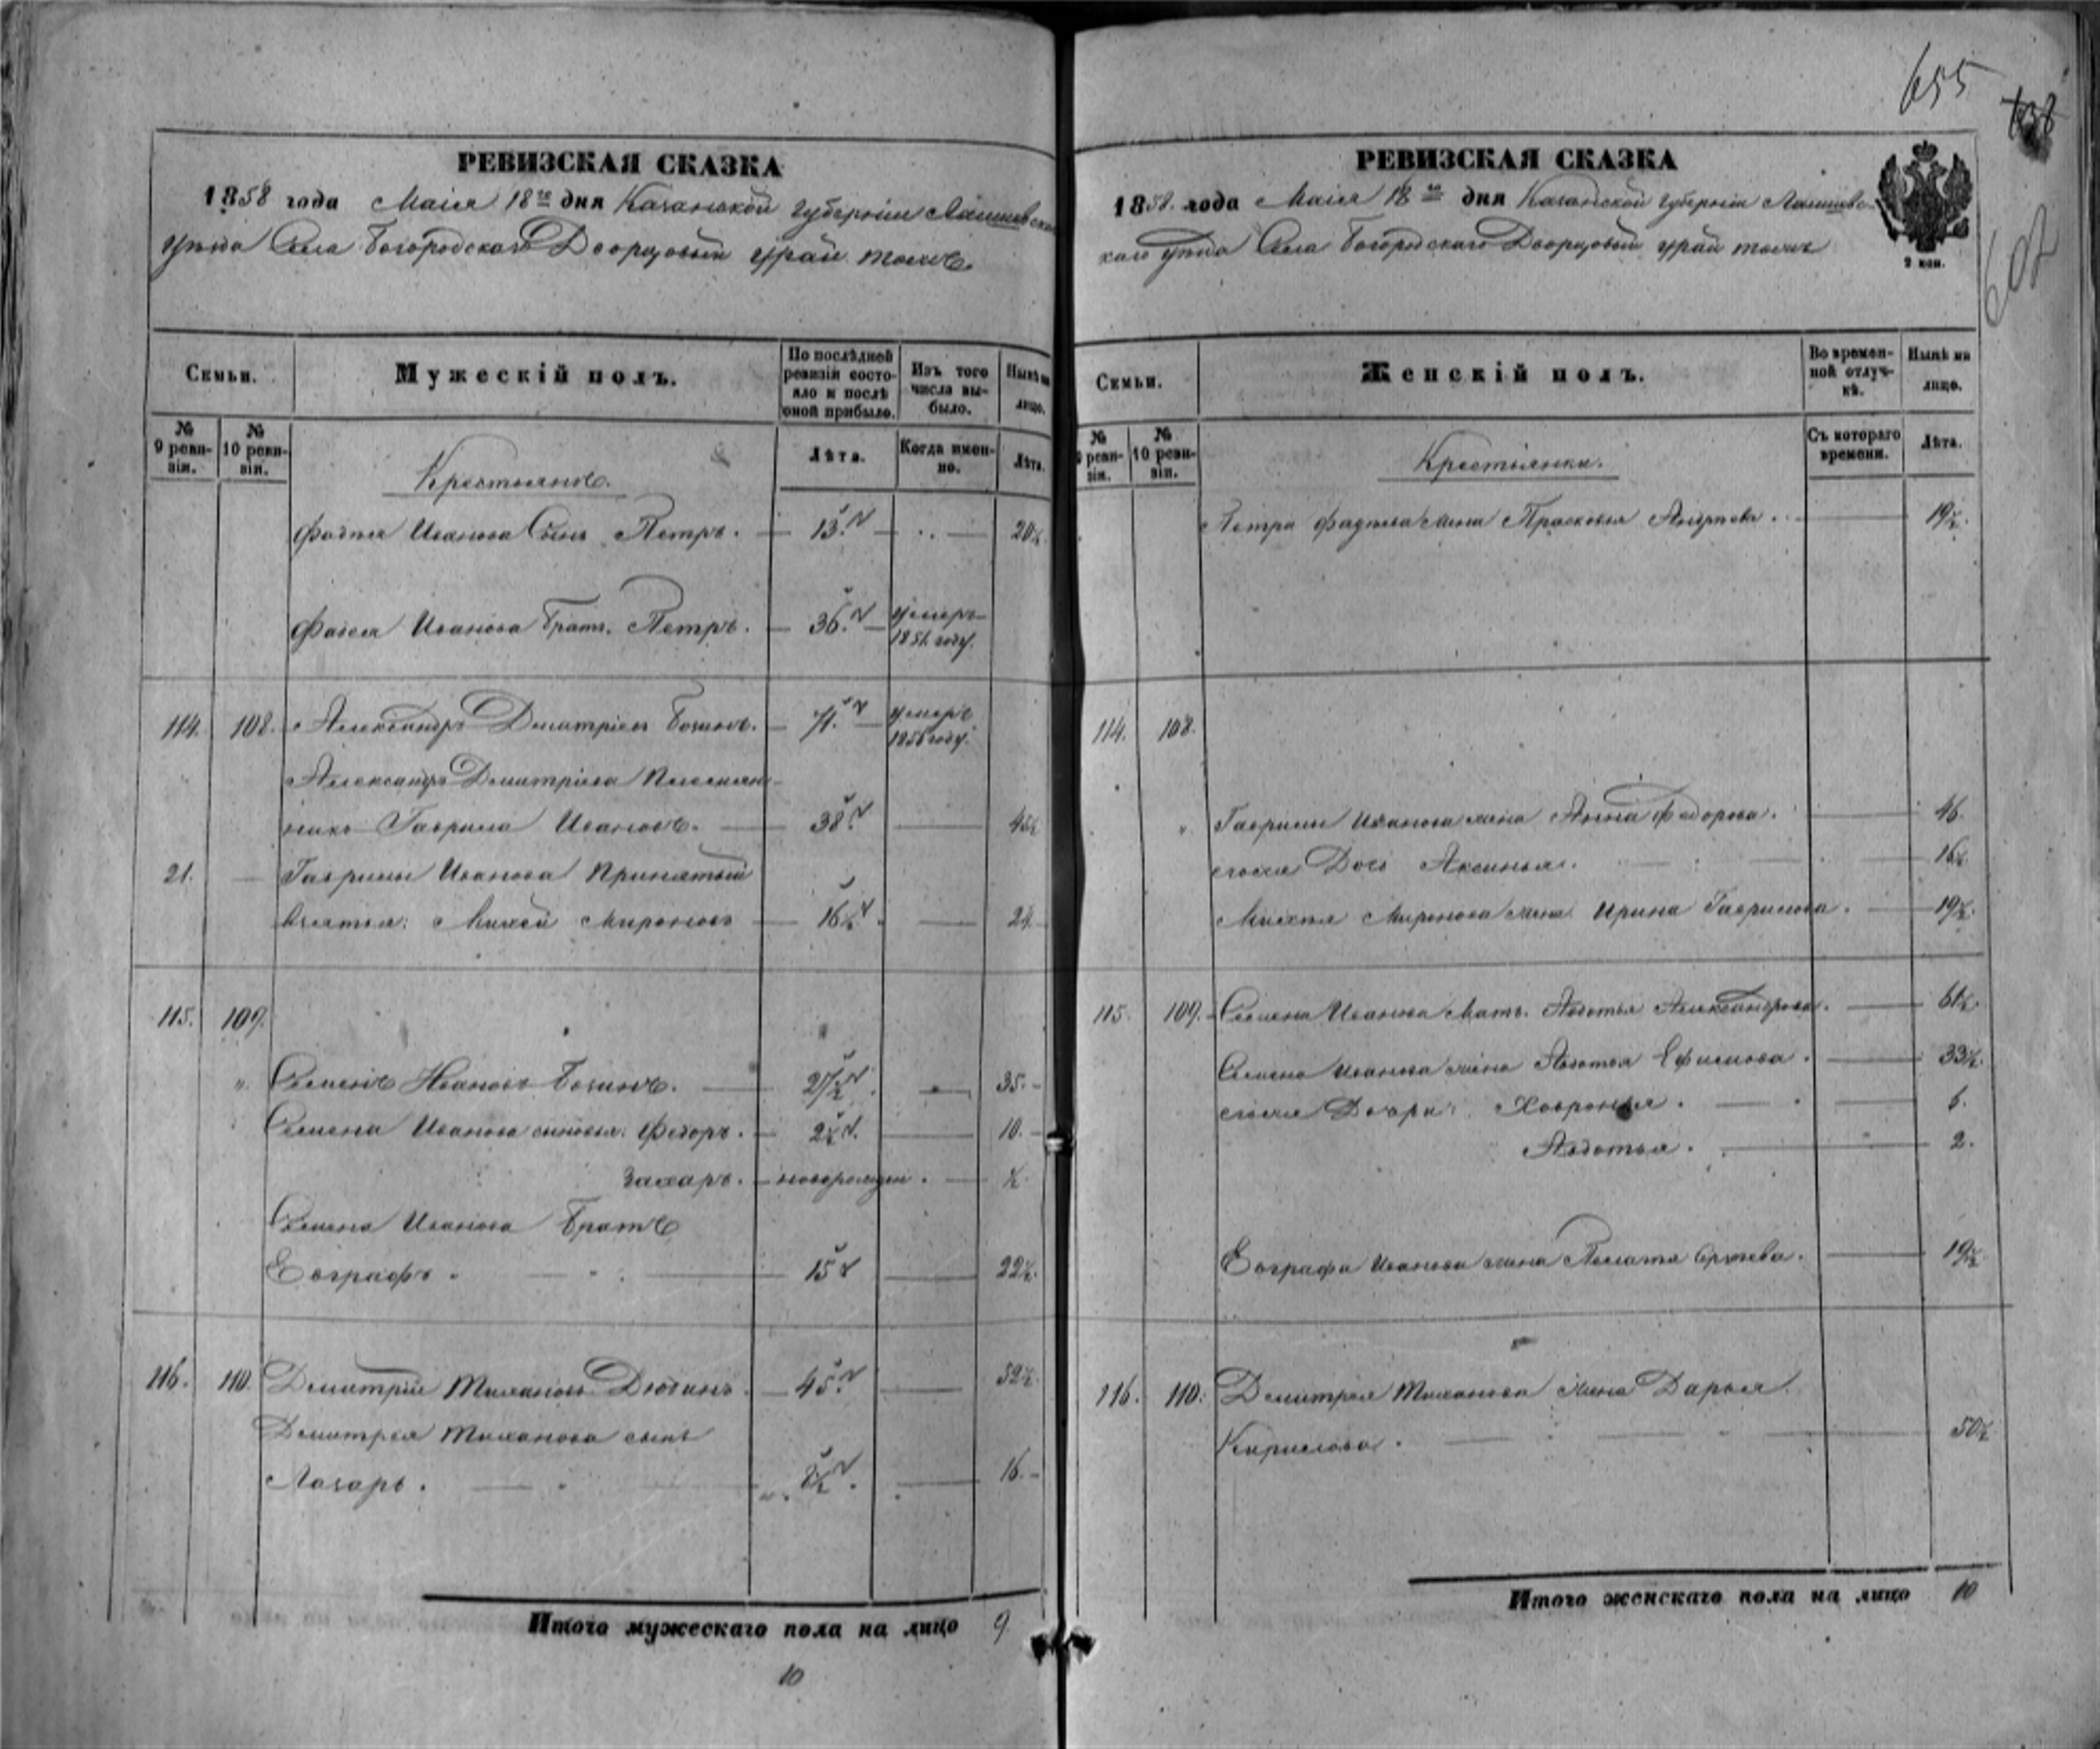 655
РЕВИЗСКАЯ СКАЗКА
1858 года Маія 18го дня Казанской губерніи Лаишевска
уѣзда Села Богородскаго Дворцовый
Семьи.
Мужескій полъ.
По послѣдней ревизіи состояло и послѣ оной прибыло.
Изъ того числа выбыло.
Нынѣ на лицо.
№ 9 ревизіи.
№ 10 ревизіи.
Крестьянъ.
Лѣта.
Когда именно.
Лѣта.
Фадѣя Иванова Сынъ Петръ. 13. 20½
Фадея Иванова Братъ Петръ. 36. умеръ 1851 году.
114. 108. Александръ Дмитріевъ 71. умеръ
Александра Дмитріева Племян-
никъ Гаврила Ивановъ. 38. 45½
21. Гаврилы Иванова Принятый
Михей Мироновъ 16½ 24
115. 109.
Семенъ Ивановъ 27½ 35.
Семена Иванова сыновья: Федоръ. 2½ 10.
Захаръ. новорожден. ½
Семена Иванова Братъ
Евграфъ. 15 22½.
116. 110. Дмитрій Дюдинъ. 45. 52½.
Дмитрея сынъ
Лазарь. 8½ 16.
Итого мужескаго пола на лицо 9
10
РЕВИЗСКАЯ СКАЗКА
1858. года Маія 18го дня Казанской губерніи Лаишевс-
каго уѣзда Села Богородскаго Дворцовый
2 коп.
602
Семьи.
Женскій полъ.
Во временной отлучкѣ.
Нынѣ на лицо.
№ 9 ревизіи.
№ 10 ревизіи.
Крестьянки.
Съ котораго времени.
Лѣта.
Петра Фадѣева жена Прасковья 19½.
114. 108.
Гаврилы Иванова жена Анна Федорова. 46.
Дочь Аксинья. 16½
Михея Миронова жена Ирина Гаврилова. 19½.
115. 109. Семена Иванова Мать Авдотья Александрова. 61½.
Семена Иванова жена Авдотья Ефимова. 33½.
Дочери: Хавронья. 6.
Авдотья. 2.
Евграфа Иванова жена 19½
116. 110. Дмитрея жена Дарья
Кирилова. 50½
Итого женскаго пола на лицо 10